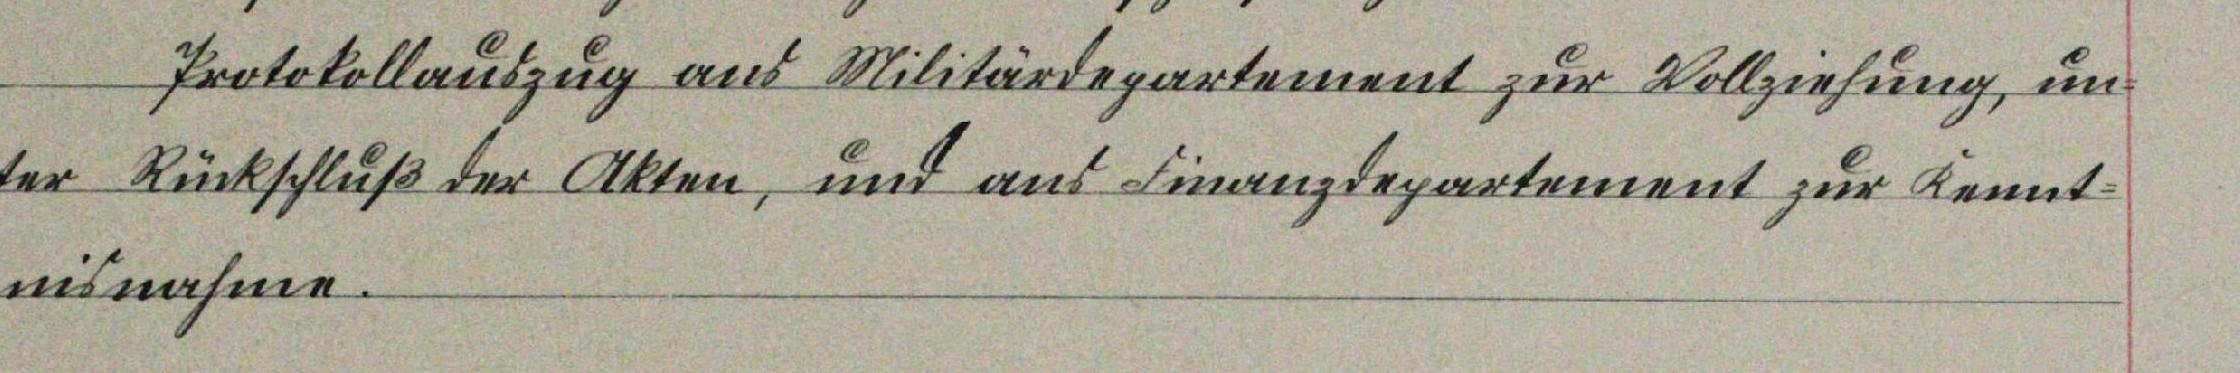 Protokollauszug ans Militärdepartement zur Vollziehung, un-
ter Rückschluß der Akten, und ans Finanzdepartement zur Kennt-
nisnahme.